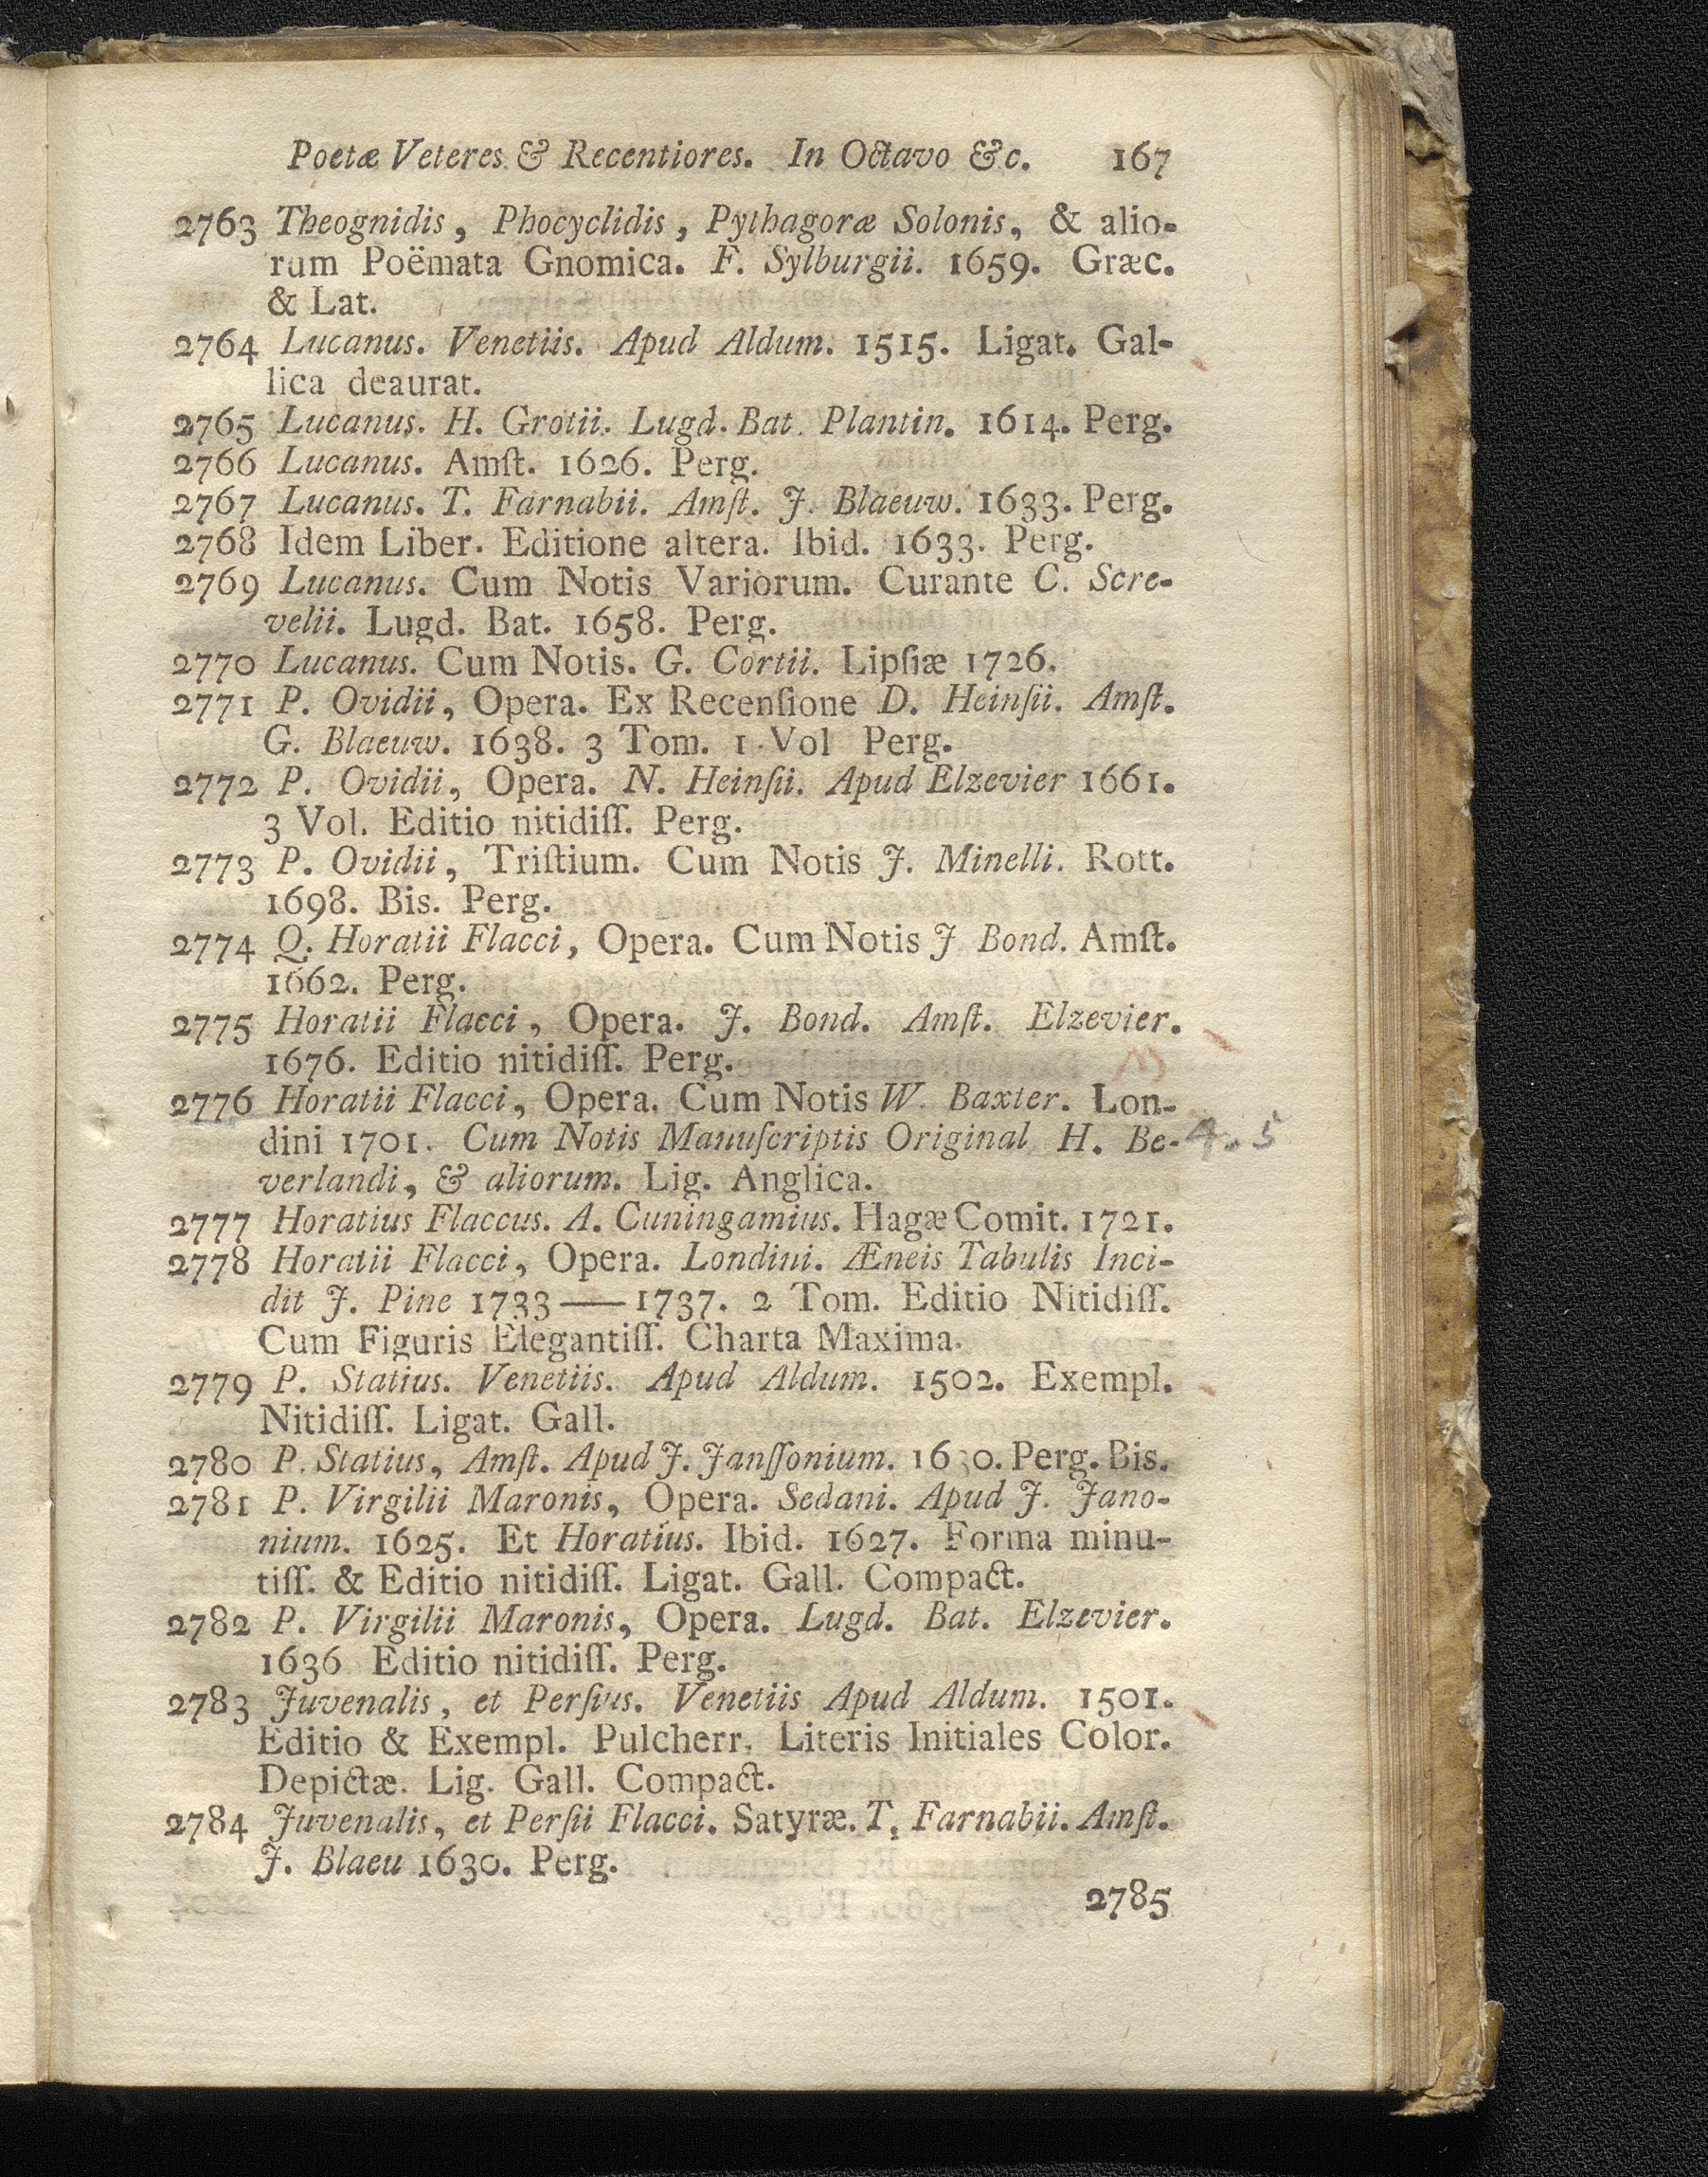 Poetæ Veteres & Recentiores. In Octavo &c. 167
2763 Theognidis, Phocyclidis, Pythagoræ Solonis, & alio-
rum Poëmata Gnomica. F. Sylburgii. 1659. Græc.
& Lat.
2764 Lucanus. Venetiis. Apud Aldum. 1515. Ligat. Gal-
lica deaurat.
2765 Lucanus. H. Grotii. Lugd. Bat. Plantin. 1614. Perg.
2766 Lucanus. Amſt. 1626. Perg.
2767 Lucanus. T. Farnabii. Amſt. J. Blaeuw. 1633. Perg.
2768 Idem Liber. Editione altera. Ibid. 1633. Perg.
2769 Lucanus. Cum Notis Variorum. Curante C. Scre-
velii. Lugd. Bat. 1658. Perg.
2770 Lucanus. Cum Notis. G. Cortii. Lipſiæ 1726.
2771 P. Ovidii, Opera. Ex Recenſione D. Heinſii. Amſt.
G. Blaeuw. 1638. 3 Tom. 1 Vol Perg.
2772 P. Ovidii, Opera. N. Heinſii. Apud Elzevier 1661.
3 Vol. Editio nitidiſſ. Perg.
2773 P. Ovidii, Triſtium. Cum Notis J. Minelli. Rott.
1698. Bis. Perg.
2774 Q. Horatii Flacci, Opera. Cum Notis J Bond. Amſt.
1662. Perg.
2775 Horatii Flacci, Opera. J. Bond. Amſt. Elzevier.
1676. Editio nitidiſſ. Perg.
2776 Horatii Flacci, Opera. Cum Notis W. Baxter. Lon-
dini 1701. Cum Notis Manuſcriptis Original H. Be- 4.5
verlandi, & aliorum. Lig. Anglica.
2777 Horatius Flaccus. A. Cuningamius. Hagæ Comit. 1721.
2778 Horatii Flacci, Opera. Londini. Æneis Tabulis Inci-
dit J. Pine 1733—1737. 2 Tom. Editio Nitidiſſ.
Cum Figuris Elegantiſſ. Charta Maxima.
2779 P. Statius. Venetiis. Apud Aldum. 1502. Exempl.
Nitidiſſ. Ligat. Gall.
2780 P. Statius, Amſt. Apud J. Janſſonium. 1630. Perg. Bis.
2781 P. Virgilii Maronis, Opera. Sedani. Apud J. Jano-
nium. 1625. Et Horatius. Ibid. 1627. Forma minu-
tiſſ. & Editio nitidiſſ. Ligat. Gall. Compact.
2782 P. Virgilii Maronis, Opera. Lugd. Bat. Elzevier.
1636 Editio nitidiſſ. Perg.
2783 Juvenalis, et Perſius. Venetiis Apud Aldum. 1501.
Editio & Exempl. Pulcherr. Literis Initiales Color.
Depictæ. Lig. Gall. Compact.
2784 Juvenalis, et Perſii Flacci. Satyræ. T. Farnabii. Amſt.
J. Blaeu 1630. Perg.
2785